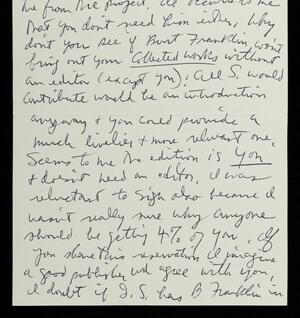 me from the project. It occurs to me
that you don't need him either. Why
don't you see if Burt Franklin won't
bring out your Collected works without
an editor (except you); all S. would
contribute would be an introduction
anyway & you could provide a
much livelier & more relevant one.
Seems to me the edition is you
& doesn't need an editor. I was
reluctant to sign also because I
wasn't really sure why anyone
should be getting 4% of you. If
you share this reservation I imagine
a good publisher wd agree with you.
I doubt if D.S. has B Franklin in